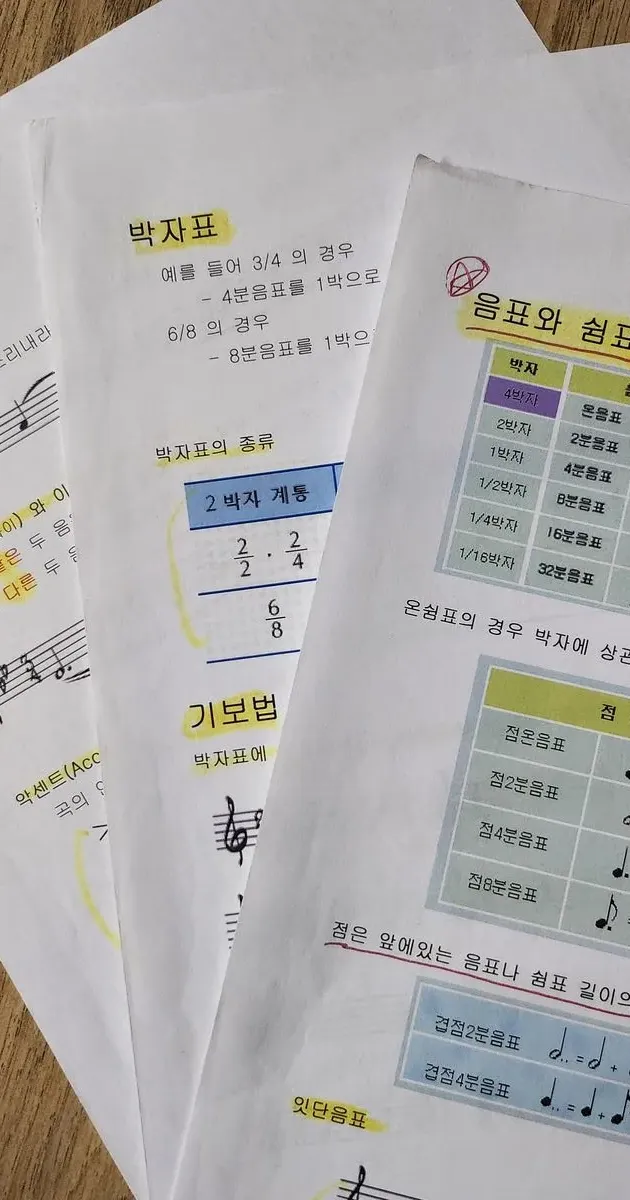 박자표
예를 들어 3/4 의 경우
- 4분음표를 1박으로
6/8 의 경우
- 8분음표를 1박으
박자표의 종류
2 박자 계통
2/2 · 2/4
6/8
기보법
박자표에
와 이
두 음
다른 두
악세트(Acc
곡의
음표와 쉼표
박자
4박자 온음표
2박자 2분음표
1박자 4분음표
1/2박자 8분음표
1/4박자 16분음표
1/16박자 32분음표
온쉼표의 경우 박자에 상관
점
점온음표
점2분음표
점4분음표
점8분음표
점은 앞에있는 음표나 쉼표 길이의
겹점2분음표
겹점4분음표
잇단음표